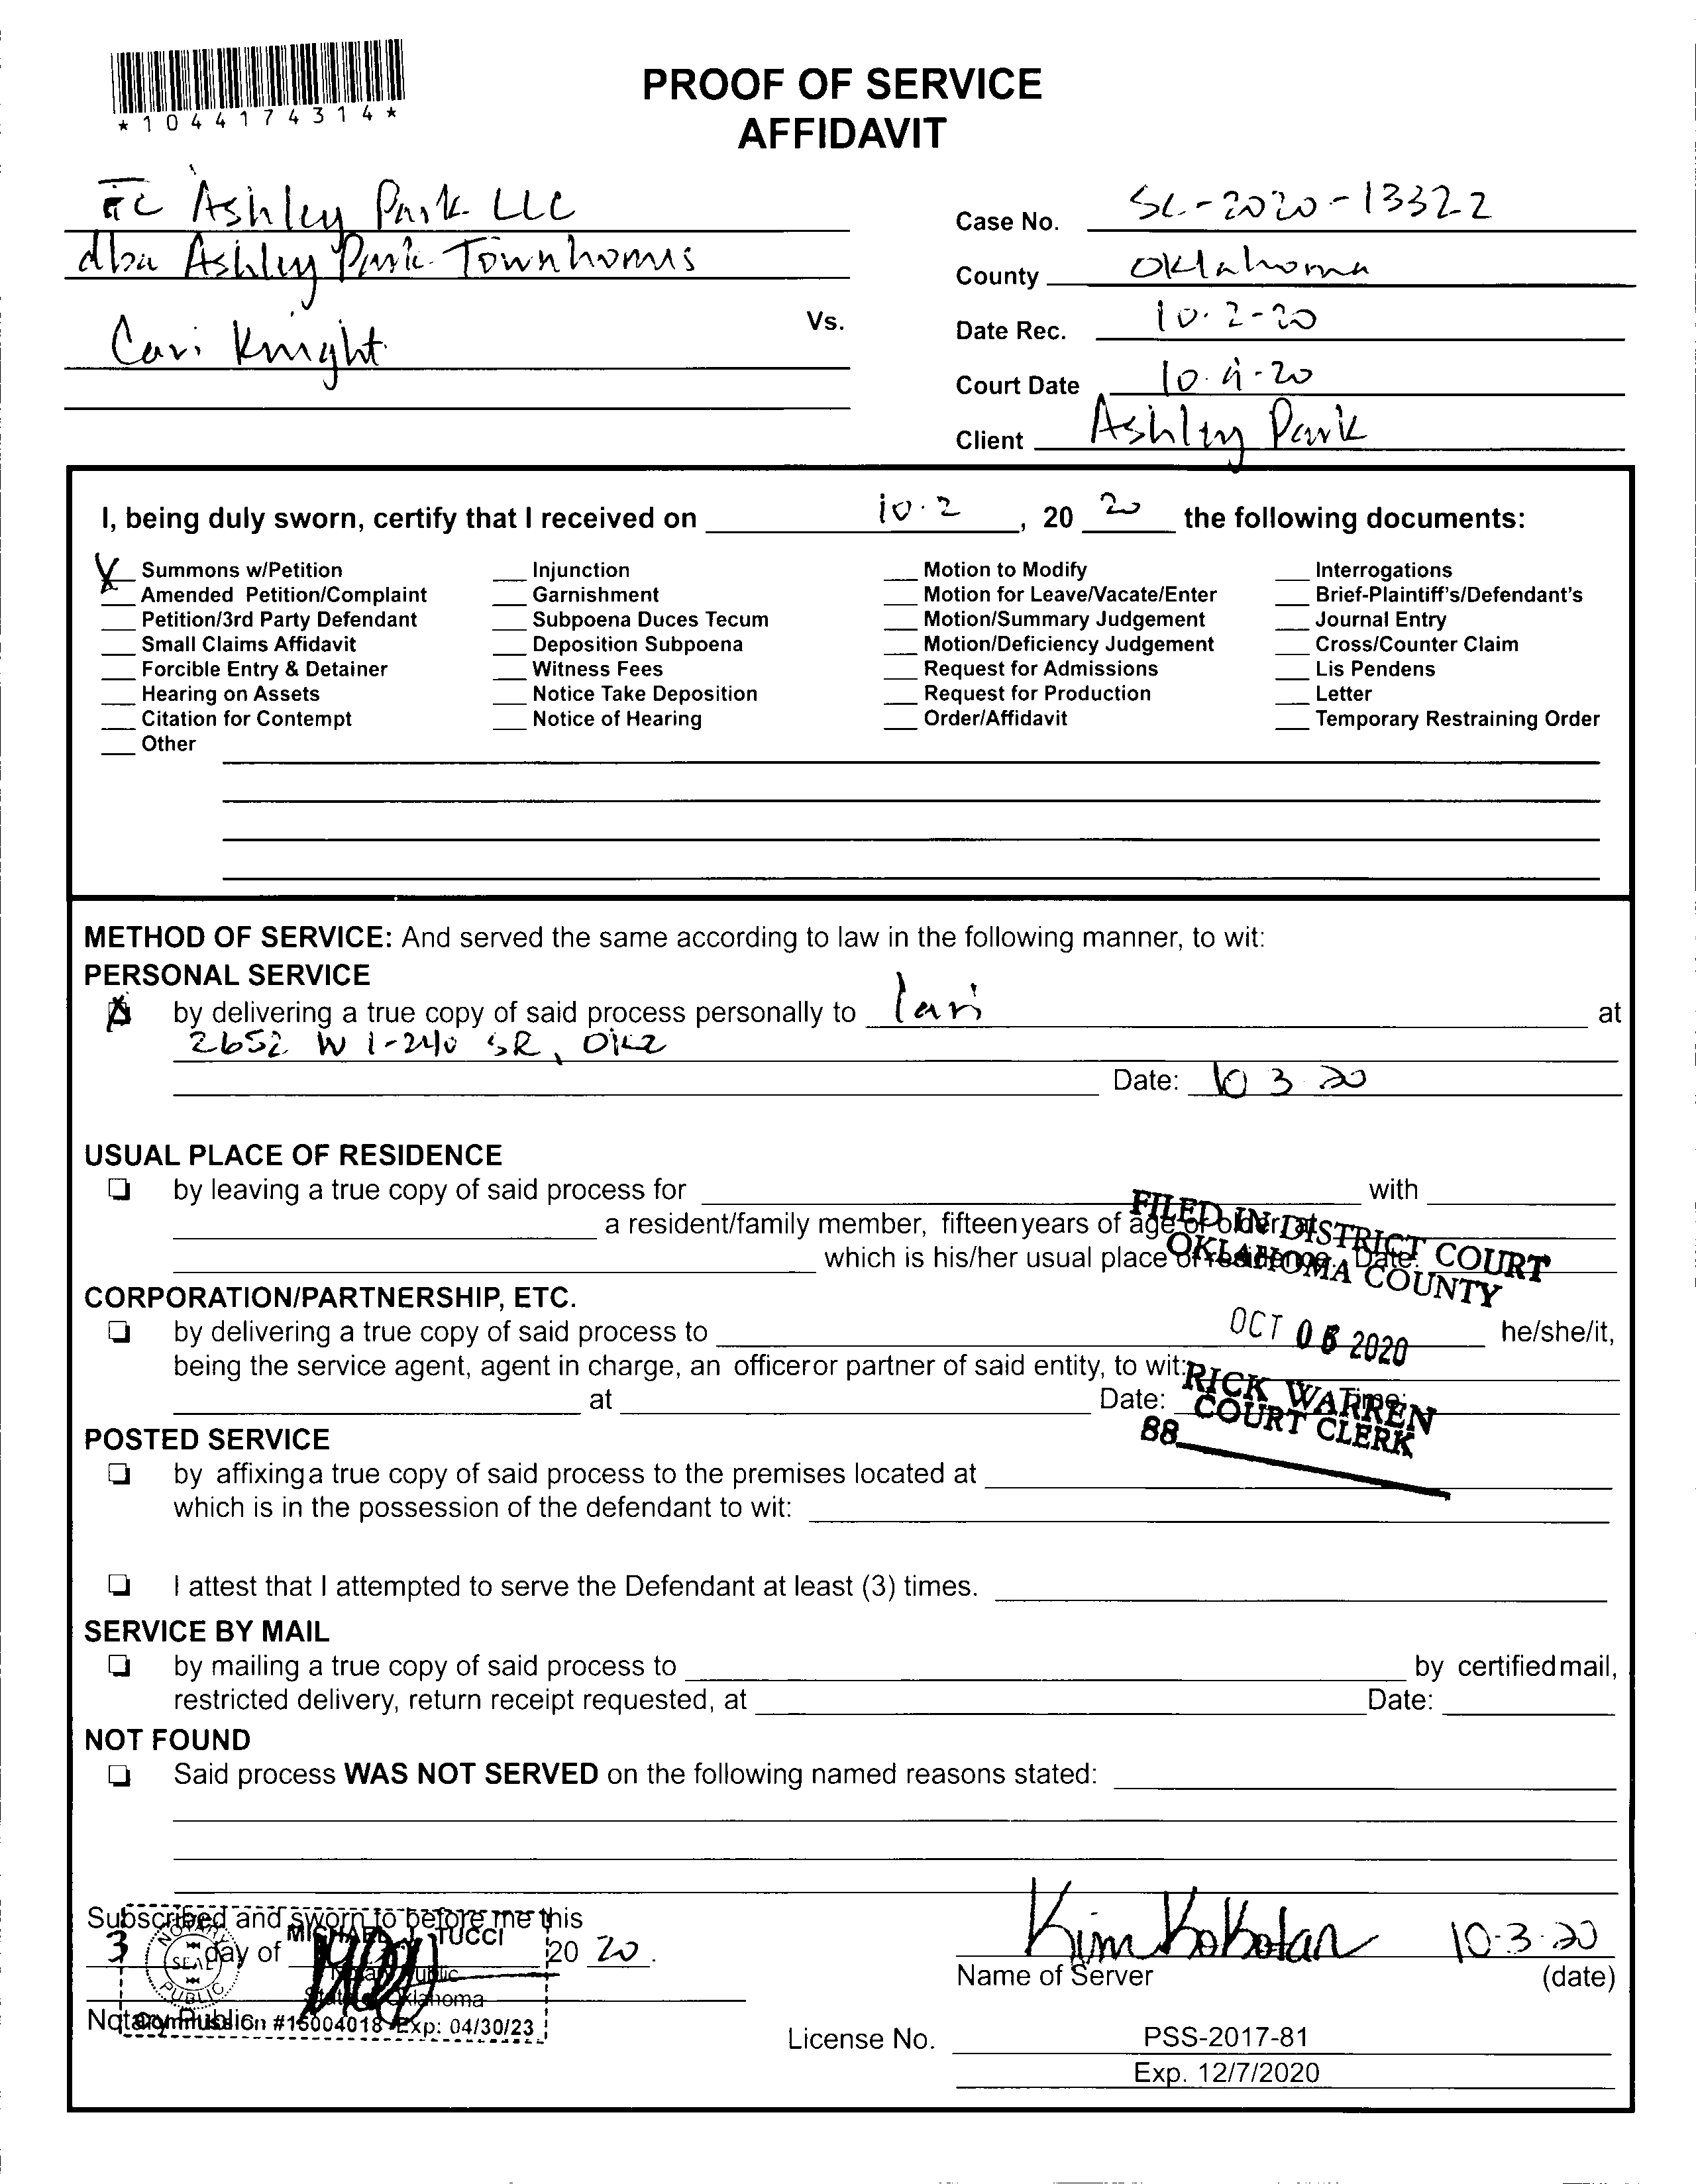 *1044174314*
PROOF OF SERVICE
AFFIDAVIT
Ashley Park LLC
dba Ashley Park Townhomes
Vs.
Cari Knight
Case No. SC-2020-13322
County Oklahoma
Date Rec. 10-2-20
Court Date 10- -20
Client Ashley Park
I, being duly sworn, certify that I received on 10-2, 20 20 the following documents:
X Summons w/Petition
Amended Petition/Complaint
Petition/3rd Party Defendant
Small Claims Affidavit
Forcible Entry & Detainer
Hearing on Assets
Citation for Contempt
Other
Injunction
Garnishment
Subpoena Duces Tecum
Deposition Subpoena
Witness Fees
Notice Take Deposition
Notice of Hearing
Motion to Modify
Motion for Leave/Vacate/Enter
Motion/Summary Judgement
Motion/Deficiency Judgement
Request for Admissions
Request for Production
Order/Affidavit
Interrogations
Brief-Plaintiff's/Defendant's
Journal Entry
Cross/Counter Claim
Lis Pendens
Letter
Temporary Restraining Order
METHOD OF SERVICE: And served the same according to law in the following manner, to wit:
PERSONAL SERVICE
X by delivering a true copy of said process personally to Cari at
2652 W I-240 SR, OKC
Date: 10 3 20
USUAL PLACE OF RESIDENCE
by leaving a true copy of said process for with
a resident/family member, fifteen years of age or older at
which is his/her usual place of residence. Date:
FILED IN DISTRICT COURT
OKLAHOMA COUNTY
CORPORATION/PARTNERSHIP, ETC.
by delivering a true copy of said process to he/she/it,
OCT 06 2020
being the service agent, agent in charge, an officer or partner of said entity, to wit:
at Date: Time:
RICK WARREN
COURT CLERK
88
POSTED SERVICE
by affixing a true copy of said process to the premises located at
which is in the possession of the defendant to wit:
I attest that I attempted to serve the Defendant at least (3) times.
SERVICE BY MAIL
by mailing a true copy of said process to by certified mail,
restricted delivery, return receipt requested, at Date:
NOT FOUND
Said process WAS NOT SERVED on the following named reasons stated:
Subscribed and sworn to before me this
3 day of 20 20.
Notary Public
NOTARY PUBLIC
SEAL
MICHAEL J. TUCCI
Notary Public
State of Oklahoma
Commission #15004018 Exp: 04/30/23
Kim Kobotan 10-3-20
Name of Server (date)
License No. PSS-2017-81
Exp. 12/7/2020